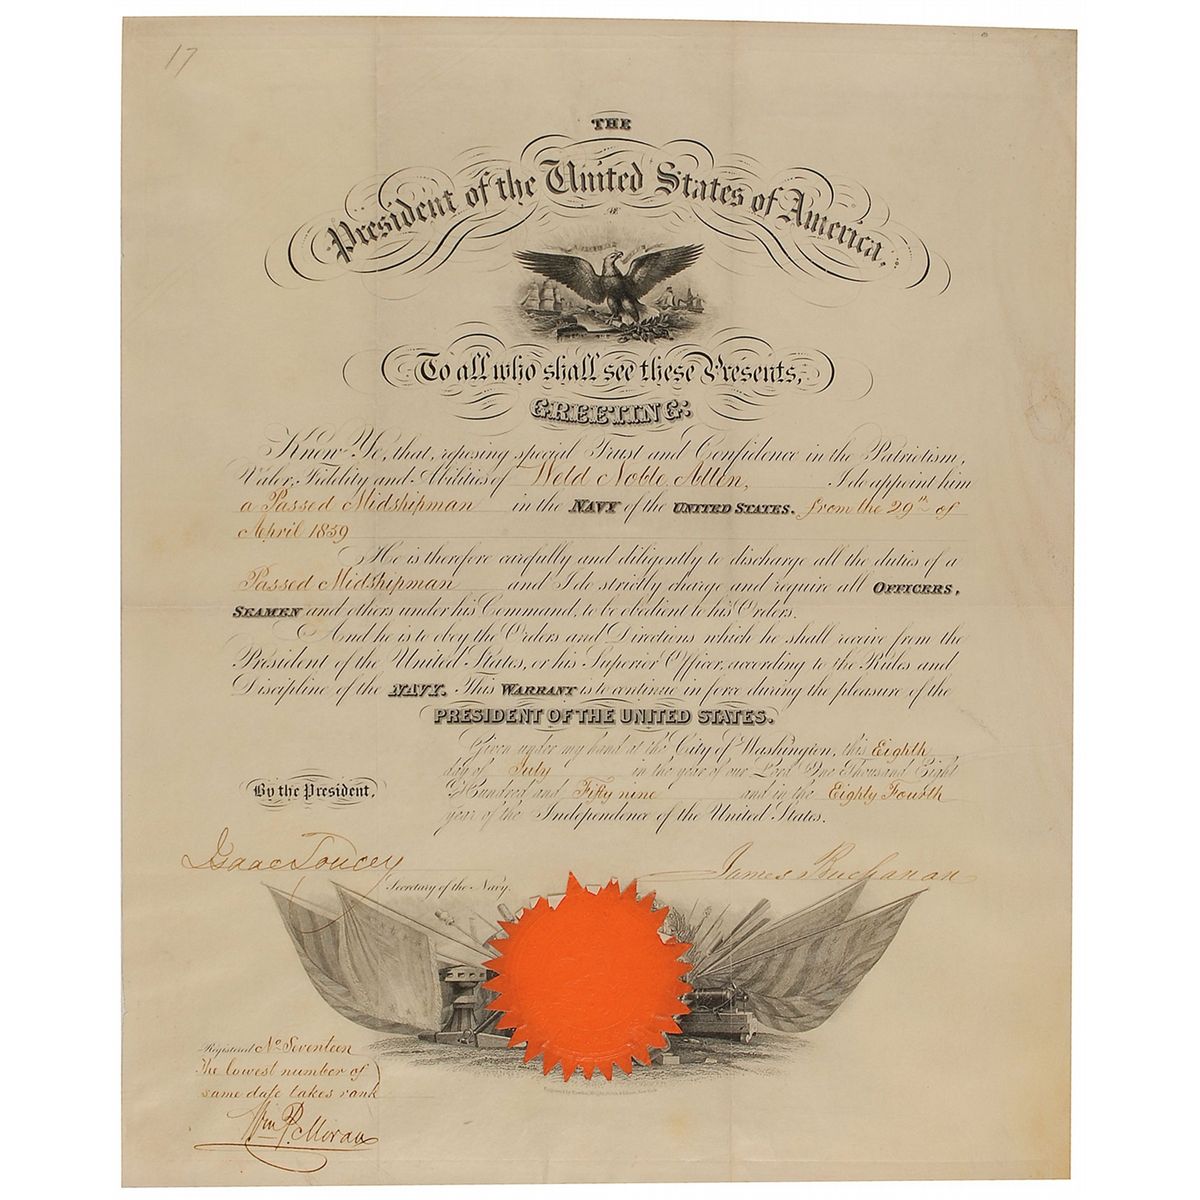 17
THE
President of the United States of America.
To all who shall see these Presents,
GREETING:
Know Ye, that, reposing special Trust and Confidence in the Patriotism,
Valor, Fidelity and Abilities of Weld Noble Allen, I do appoint him
a Passed Midshipman in the NAVY of the UNITED STATES. from the 29th of
April 1859
He is therefore carefully and diligently to discharge all the duties of a
Passed Midshipman and I do strictly charge and require all OFFICERS,
SEAMEN and others under his Command, to be obedient to his Orders.
And he is to obey the Orders and Directions which he shall receive from the
President of the United States, or his Superior Officer, according to the Rules and
Discipline of the NAVY. This WARRANT is to continue in force during the pleasure of the
PRESIDENT OF THE UNITED STATES.
Given under my hand at the City of Washington, this Eighth
day of July in the year of our Lord One Thousand Eight
Hundred and Fifty nine and in the Eighty Fourth
year of the Independence of the United States.
By the President,
Isaac Toucey
James Buchanan
Secretary of the Navy.
Registered No Seventeen
The lowest number of
same date takes rank
Wm P. Moran